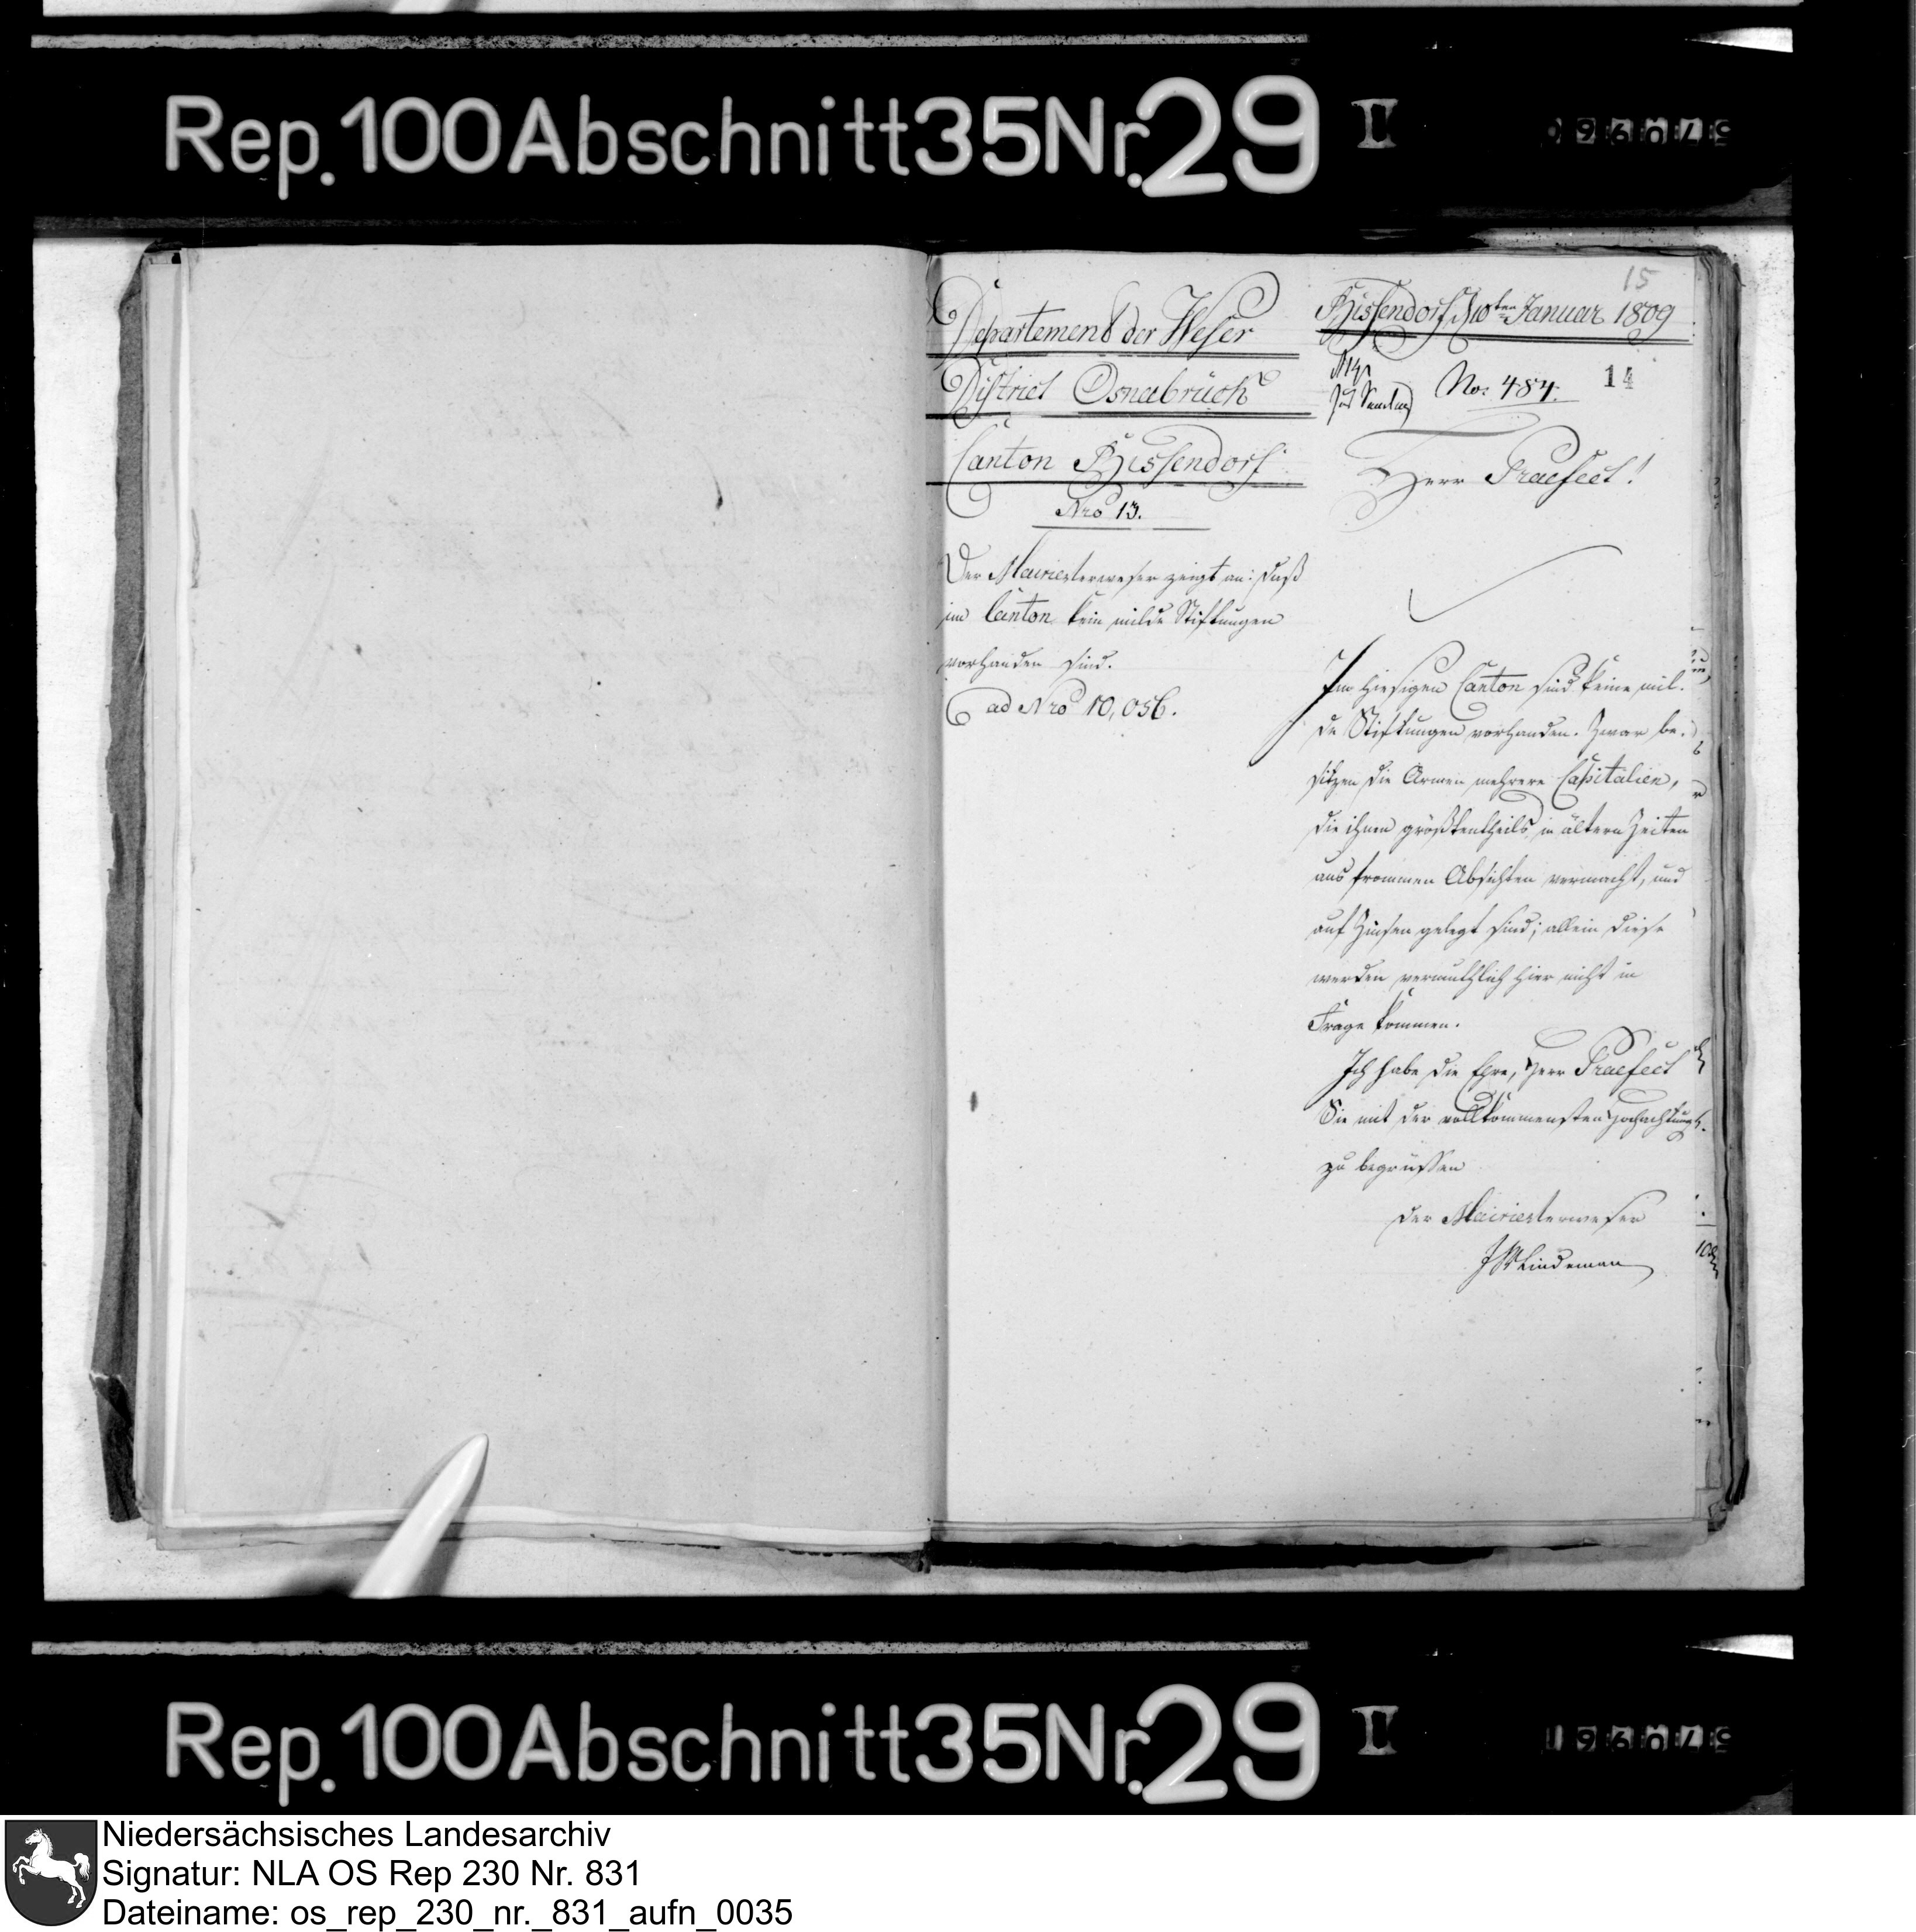 Rep. 100 Abschnitt 35 Nr. 29 I
15
Departement der Weser
District Osnabrück
Canton Bissendorf
Nro 13.
Der Mairieverweser zeigt an: daß
im Canton kein milde Stiftungen
vorhanden sind.
ad Nro 10,056.
Bissendorf d 10ten Januar 1809
No: 484.
14
Herr Praefect!
Im hiesigen Canton sind keine mil-
de Stiftungen vorhanden. Zwar be-
sitzen die Armen mehrere Capitalien,
die ihnen größtentheils in ältern Zeiten
aus frommen Absichten vermacht, und
auf Zinsen gelegt sind; allein diese
werden vermuthlich hier nicht in
Frage kommen.
Ich habe die Ehre, Herr Praefect
Sie mit der vollkommensten Hochachtung
zu begrüssen
Der Mairieverweser
JW Lindeman
Rep. 100 Abschnitt 35 Nr. 29 I
Niedersächsisches Landesarchiv
Signatur: NLA OS Rep 230 Nr. 831
Dateiname: os_rep_230_nr._831_aufn_0035